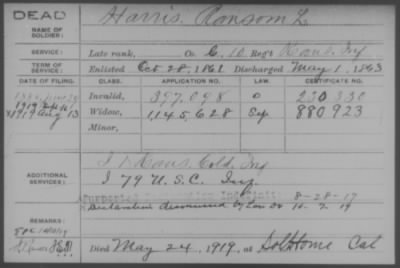 DEAD
NAME OF SOLDIER:
Harris, Ransom L.
SERVICE:
Late rank, Co. C, 10 Reg't Kans. Inf
TERM OF SERVICE:
Enlisted Oct 28, 1861 Discharged May 1, 1863
DATE OF FILING. CLASS. APPLICATION NO. LAW. CERTIFICATE NO.
Invalid, 397.098 230.330
1919 Aug 13 Widow, 1,145,628 Sep 880,923
Minor,
ADDITIONAL SERVICES:
I 1 Kans. Cold. Inf
I 79 U.S.C. Inf.
8-28-17
Declaration
REMARKS:
Died May 24, 1919, at Sol Home Cal